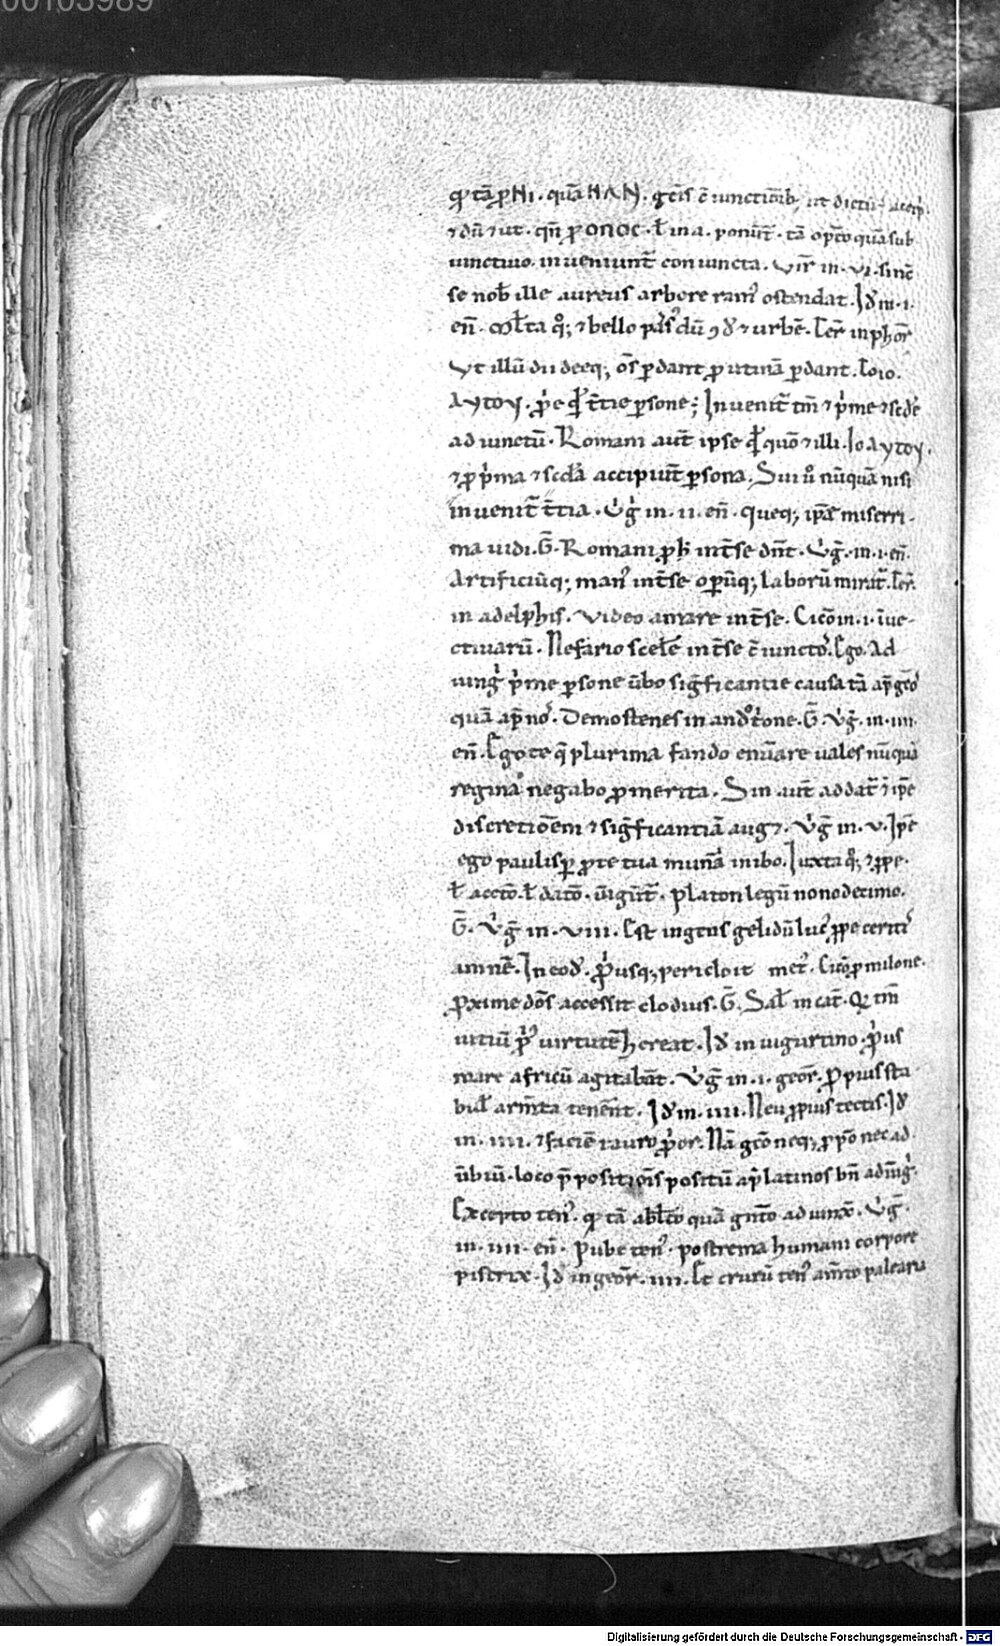 00103989
qđ tā ꝑ HI. quā HAN. gͨis ē iunctioib; ut dictū ē accip
⁊ dū ⁊ ut. qn̄ ꝑ ONOC. ł in a. ponūt̄. tā opt̄o quā sub
iunctiuo. inueniunt̄ coniuncta. Vir̄ in. vi. sinc̄
se nob̄ ille aureus arbore ram᾽ ostendat. Id̄ in. i.
en̄. Ml̄ta qͦ; ⁊ bello pas᾽ dū ꝯđ ⁊ urbē. Ter̄ in phor̄
Vt illū dii deeq; om̄s ꝑdant ꝓ uitinā ꝑdant.
AYTOY. p̄e tͨie ꝑsone; Inuenit̄ tm̄ ⁊ p̄me ⁊ scd̄e
ad iunctū. Romani aut̄ ipse quō ⁊ illi. AYTOY.
⁊ ꝓ p̄ma ⁊ scd̄a accipiūt̄ ꝑsona. Sui ū nūquā nisi
inuenit̄ t̄tia. Vḡ in. ii. en̄. queq; ip̄e miserri
ma uidi. G̅. Romani ꝓ h int̄se dn̄t. Vḡ. in. i. en̄.
Artificiūq; man᾽ int̄se operūq; laborū mirat̄. Ter̄.
in adelphis. Video amare int̄se. Cicō in. i. īue
ctiuarū. Nefario scel̄e int̄se ē iuncto᾽. Ego. Ad
iung᾽ p̄me ꝑsone ūbo sig̅ficantie causa tā ap̄ gͨo᾽
quā ap̄ no᾽. Demostenes in andͦt᾽one. G̅. Vḡ. in. iiii
en̄. Ego te q̄ plurima fando enūare uales nūquā
regina negabo ꝓmerita. Sin aut̄ addat̄ ⁊ ip̄e
discretiōem ⁊ sig̅ficantiā auget. Vḡ in. v. Ip̄e
ego paulisꝑ ꝓ te tua mun̄a inibo. Iuxta qͦ; ⁊ ꝓpe.
ł acctō. ł datō. Platon legū nonodecimo.
G̅. Vḡ in. viii. Est ingens gelidū luc᾽ ꝓpe ceriti᾽
amnē. In eod᾽. p̄usq; Cicō ꝓ milone.
Proxime dōs accessit clodius. G̅. Sal̄ in cat̄. Q̄ tm̄
uitiū p̄᾽ uirtutē h̄ereat. Id̄ in iugurtino. p̄us
mare africū agitabāt. Vḡ in. i. geor̄. Propius sta
bul̄ arm̄ta tenēnt. Id̄ in. iiii. Neu ꝓpius tectis. Id̄
in. iiii. ⁊ faciē tauro ꝓpior. Nā gͨō neq; ꝓ p̄pō nec ad
ūbiū. loco p̄positiōis positū ap̄ latinos bn̄ adiūg᾽.
Excepto ten᾽. qđ tā abl̄tō quā gn̄to adiunx᾽. Vḡ.
in. iiii. en̄. Pube ten᾽. postrema humani corpore
pistrix. Id̄ in geor̄. iiii. Et crurū ten᾽ am̄to palearia
Digitalisierung gefördert durch die Deutsche Forschungsgemeinschaft - DFG